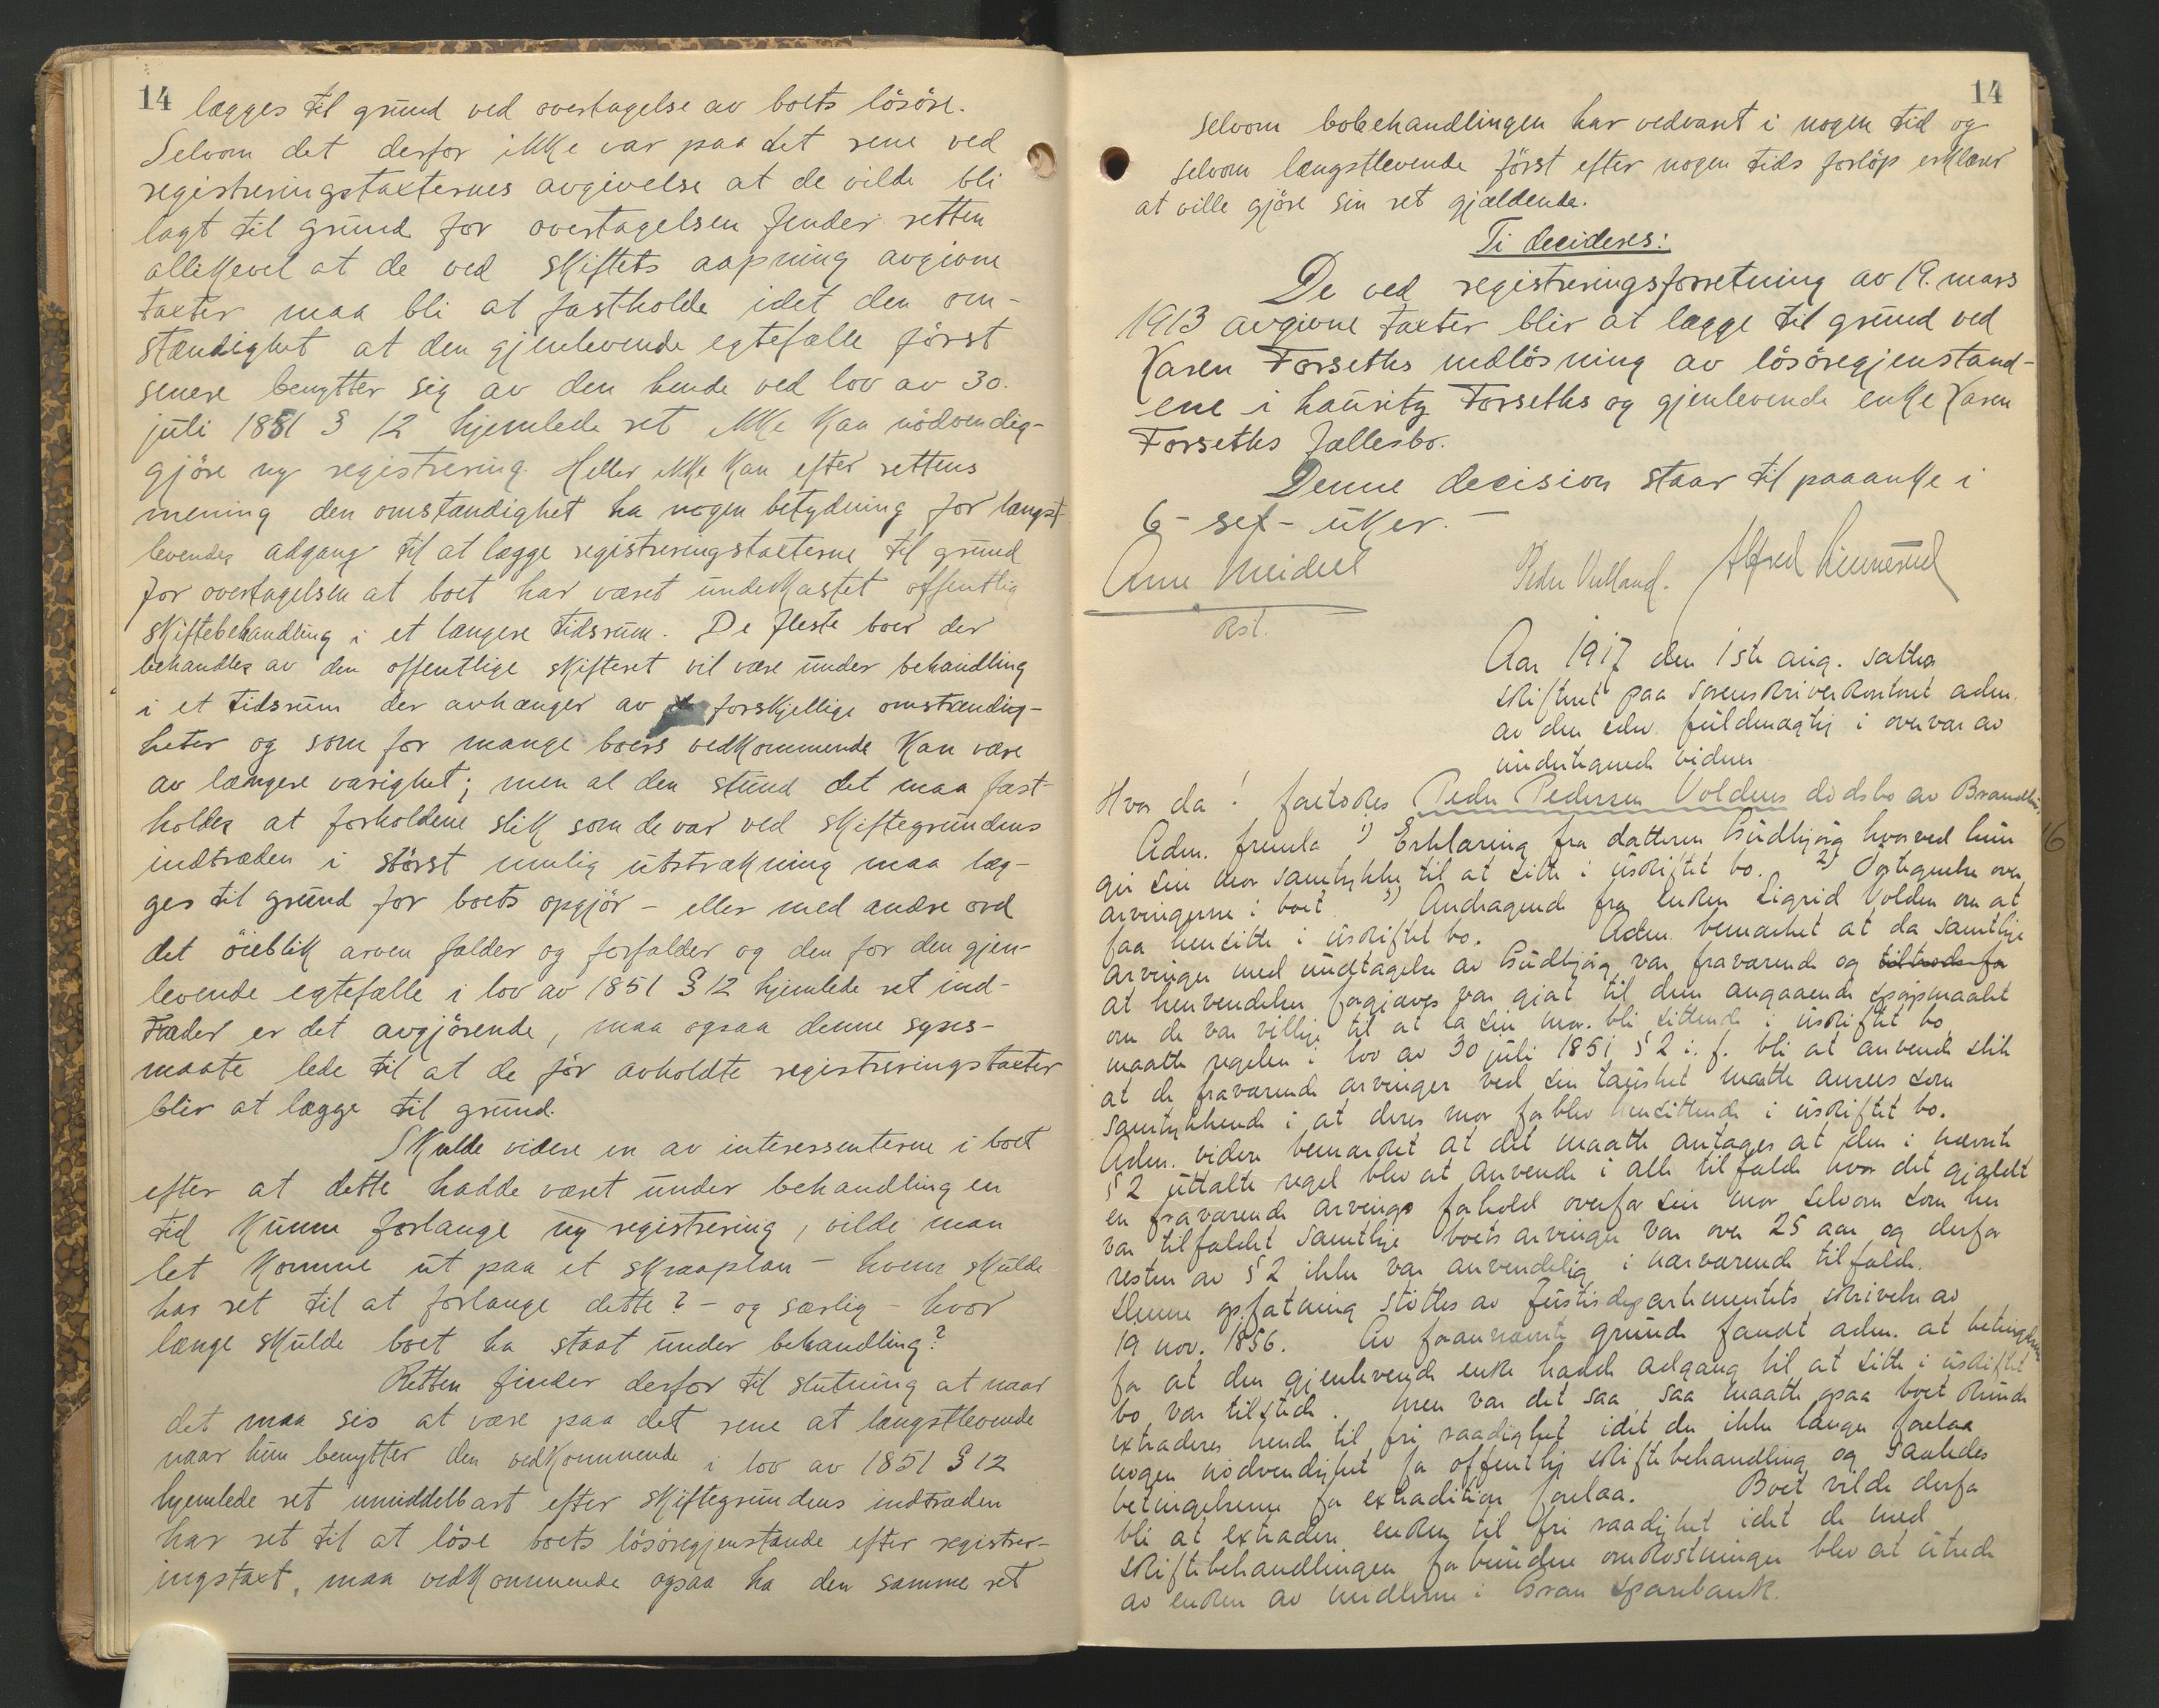 14
lægges til grund ved overtagelse av boets lösöre.
Selvom det derfor ikke var paa det rene ved
registreringstaxternes avgivelse at de vilde bli
lagt til grund for overtagelsen finder retten
allikevel at de ved skiftets aapning avgivne
taxter maa bli at fastholde idet den om-
stændighet at den gjenlevende egtefælle först
senere benytter sig av den hende ved lov av 30.
juli 1851 § 12 hjemlede ret ikke kan nödvendig-
gjöre ny registrering. Heller ikke kan efter rettens
mening den omstændighet ha nogen betydning for længst-
levendes adgang til at lægge registreringstaxterne til grund
for overtagelsen at boet har været underkastet offentlig
skiftebehandling i et længere tidsrum. De fleste boer der
behandles av den offentlige skifteret vil være under behandling
i et tidsrum der avhænger av forskjellige omstændig-
heter og som for mange boers vedkommende kan være
av længere varighet; men al den stund det maa fast-
holdes at forholdene slik som de var ved skiftegrundens
indtræden i störst mulig utstrækning maa læg-
ges til grund for boets opgjör - eller med andre ord
det öieblik arven falder og forfalder og den for den gjen-
levende egtefælle i lov av 1851 § 12 hjemlede ret ind-
træder er det avgjörende, maa ogsaa denne syns-
maate lede til at de för avholdte registreringstaxter
blir at lægge til grund.
Skulde videre en av interessenterne i boet
efter at dette hadde været under behandling en
tid kunne forlange ny registrering, vilde man
let komme ut paa et skraaplan - hvem skulde
har ret til at forlange dette? - og særlig - hvor
længe skulde boet ha staat under behandling?
Retten finder derfor til slutning at naar
det maa sies at være paa det rene at længstlevende
naar hun benytter den vedkommende i lov av 1851 § 12
hjemlede ret umiddelbart efter skiftegrundens indtræden
har ret til at löse boets lösöregjenstande efter registrer-
ingstaxt, maa vedkommende ogsaa ha den samme ret
14
selvom bobehandlingen har vedvart i nogen tid og
selvom længstlevende först efter nogen tids forlöp erklærer
at ville gjöre sin ret gjældende.
Ti decideres:
De ved registreringsforretning av 19. mars
1913 avgivne taxter blir at lægge til grund ved
Karen Forseths indlösning av lösöregjenstand-
ene i Lauritz Forseths og gjenlevende enke Karen
Forseths fællesbo.
Denne decision staar til paaanke i
6 - sex - uker. -
Arne Meidell Peder Alfred
kst.
Aar 1917 den 1ste aug. sattes
skifteret paa sorenskriverkontoret adm.
av den edsv. fuldmægtig i overvær av
undertegnede vidner
Hvor da: foretokes Peder Pedersen Voldens dödsbo av Brandbu
16
Adm. fremla 1) Erklæring fra datteren Gudbjörg hvorved hun
gir sin mor samtykke til at sitte i uskiftet bo. 2) Fortegnelse over
arvingerne i boet 3) Andragende fra enken Sigrid Volden om at
faa hensitte i uskiftet bo. Adm. bemærket at da samtlige
arvinger med undtagelse av Gudbjörg var fraværende og tiltrods for
at henvendelse forgjæves var gjort til dem angaaende spörsmaalet
om de var villige til at la sin mor bli sittende i uskiftet bo,
maatte regelen i lov av 30 juli 1851 § 2 i. f. bli at anvende slik
at de fraværende arvinger ved sin taushet maatte ansees som
samtykkende i at deres mor forblev hensittende i uskiftet bo.
Adm. videre bemærket at det maatte antages at den i nævnte
§ 2 uttalte regel blev at anvende i alle tilfælde hvor det gjaldt
en fraværende arvings forhold overfor sin mor selvom som her
var tilfældet samtlige boets arvinger var over 25 aar og derfor
resten av § 2 ikke var anvendelig i nærværende tilfælde.
Denne opfatning stöttes av Justisdepartementets skrivelse av
19 nov. 1856. Av foran nævnte grunde fandt adm. at betingelsene
for at den gjenlevende enke hadde adgang til at sitte i uskiftet
bo var tilstede. Men var det saa, saa maatte ogsaa boet kunde
extraderes hende til fri raadighet idet der ikke længer forelaa
nogen nödvendighet for offentlig skiftebehandling og saaledes
betingelserne for extradition forelaa. Boet vilde derfor
bli at extradere enken til fri raadighet idet de med
skiftebehandlingen forbundne omkostninger blev at utrede
av enken av midlerne i Gran Sparebank.